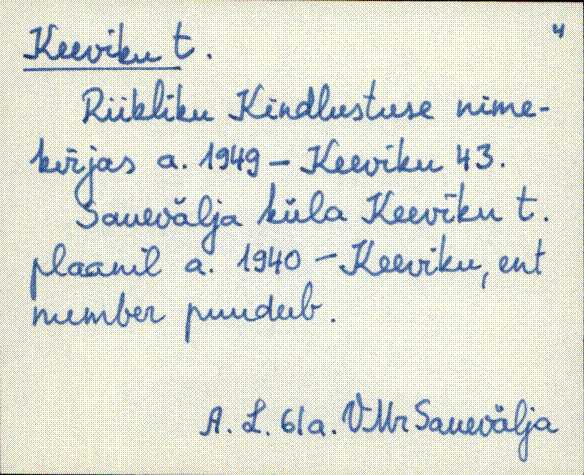 4
Keeviku t.
Riikliku Kindlustuse nime-
kirjas a. 1949 – Keeviku 43.
Sauevälja küla Keeviku t.
plaanil a. 1940 – Keeviku, ent
number puudub.
A. L. 61a. VMr Sauevälja